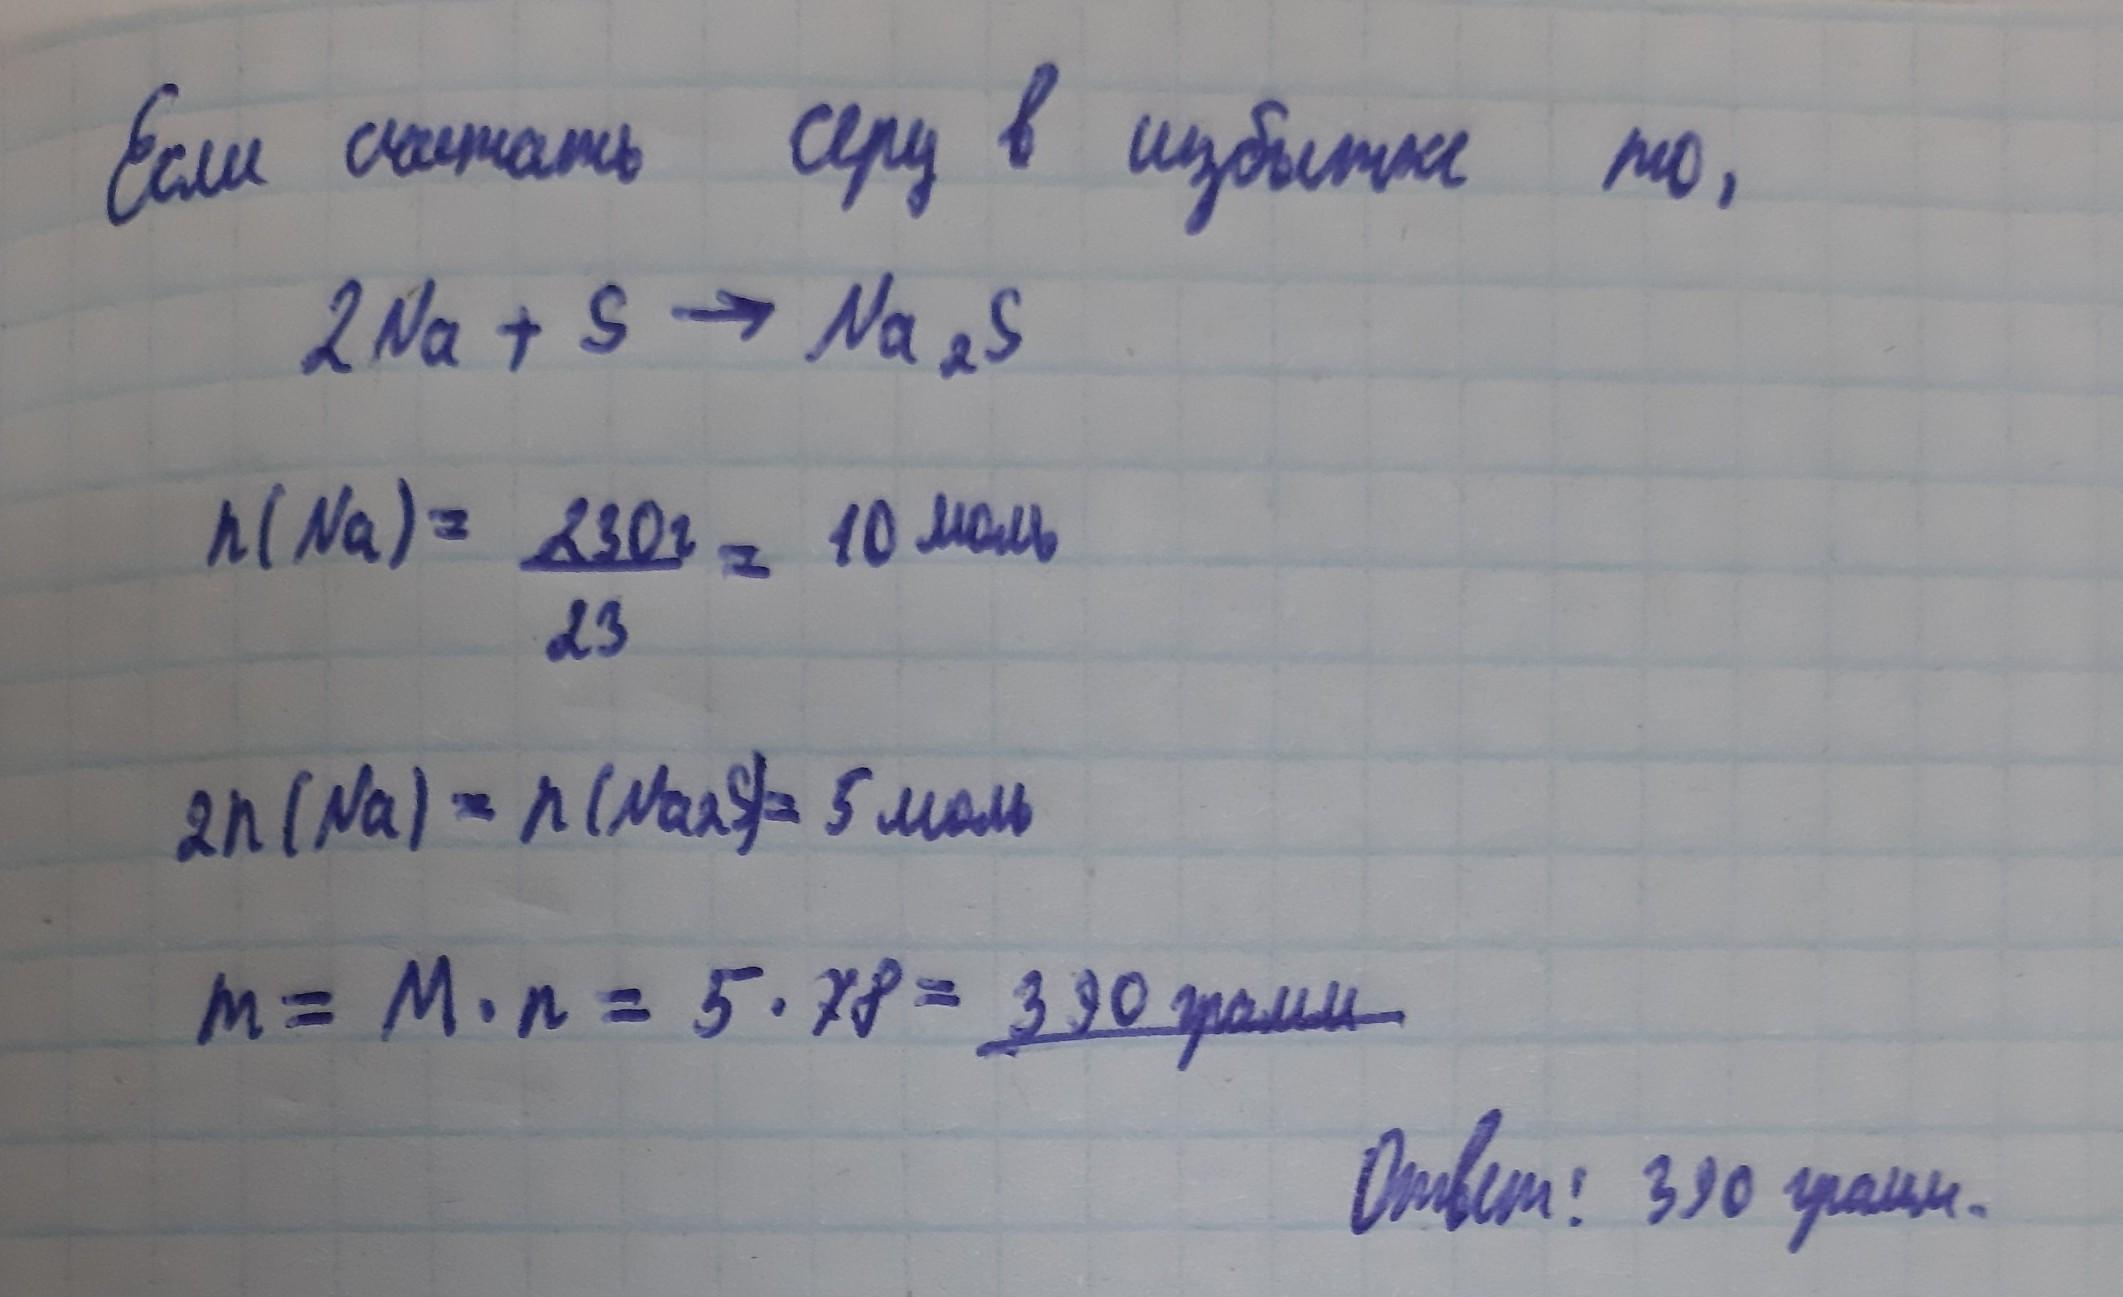 Если считать серу в избытке то,
2Na + S → Na₂S
n(Na) = 230г = 10 моль
23
2n(Na) = n(Na2S) = 5 моль
m = M · n = 5 · 78 = 390 грамм
Ответ: 390 грамм.